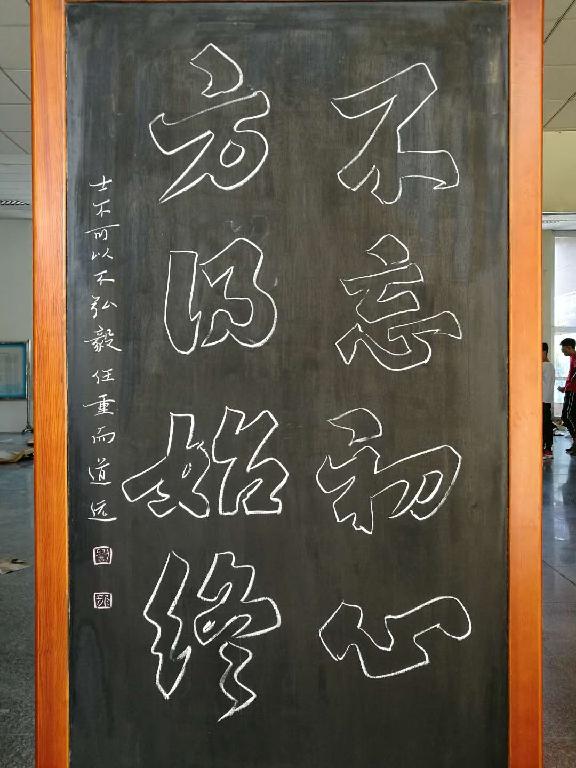 不忘初心
方得始终
士不可以不弘毅任重而道远